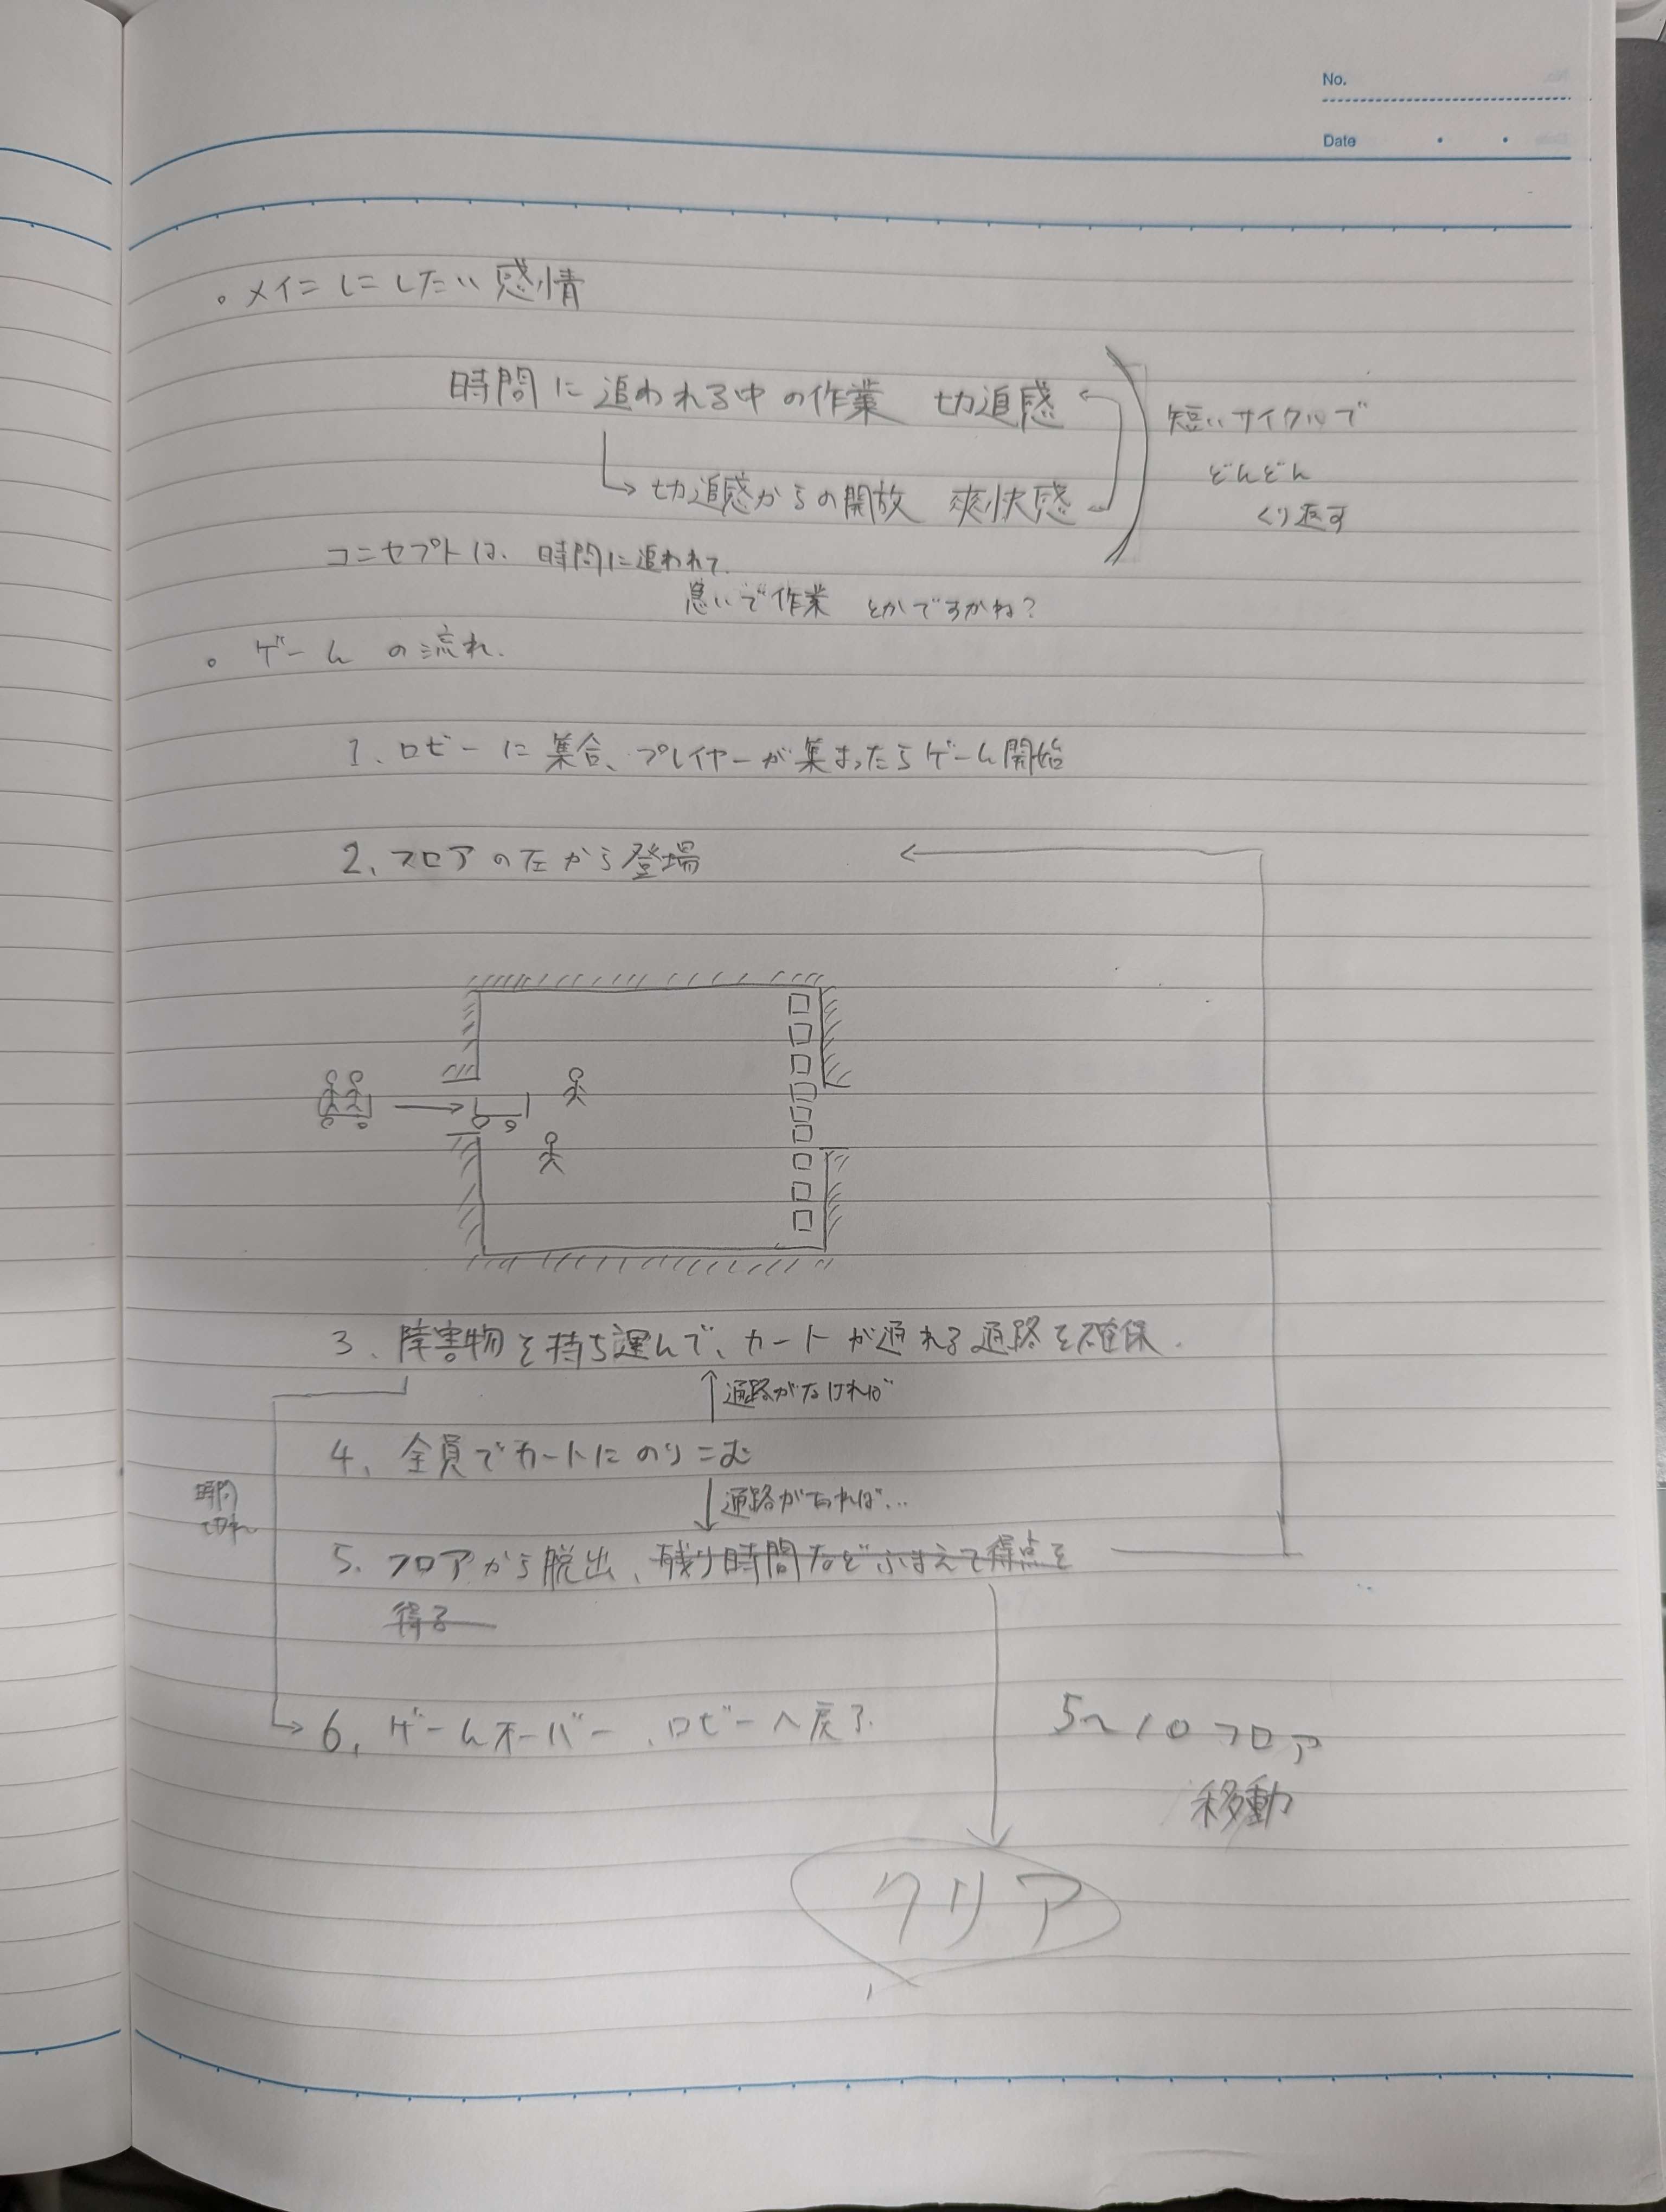 No.
Date
。メインにしたい感情
時間に追われる中の作業 切迫感
切迫感からの開放 爽快感
短いサイクルで
どんどん
くり返す
コンセプトは、時間に追われて、
急いで作業 とかですかね?
。ゲームの流れ.
1. ロビーに集合、プレイヤーが集まったらゲーム開始
2、フロアの左から登場
3、障害物を持ち運んで、カートが通れる通路を確保.
通路がなければ
4、全員でカートにのりこむ
通路があれば...
時間
切れ
5. フロアから脱出、残り時間などふまえて得点を
得る
6, ゲームオーバー、ロビーへ戻る.
5〜10フロア
移動
クリア